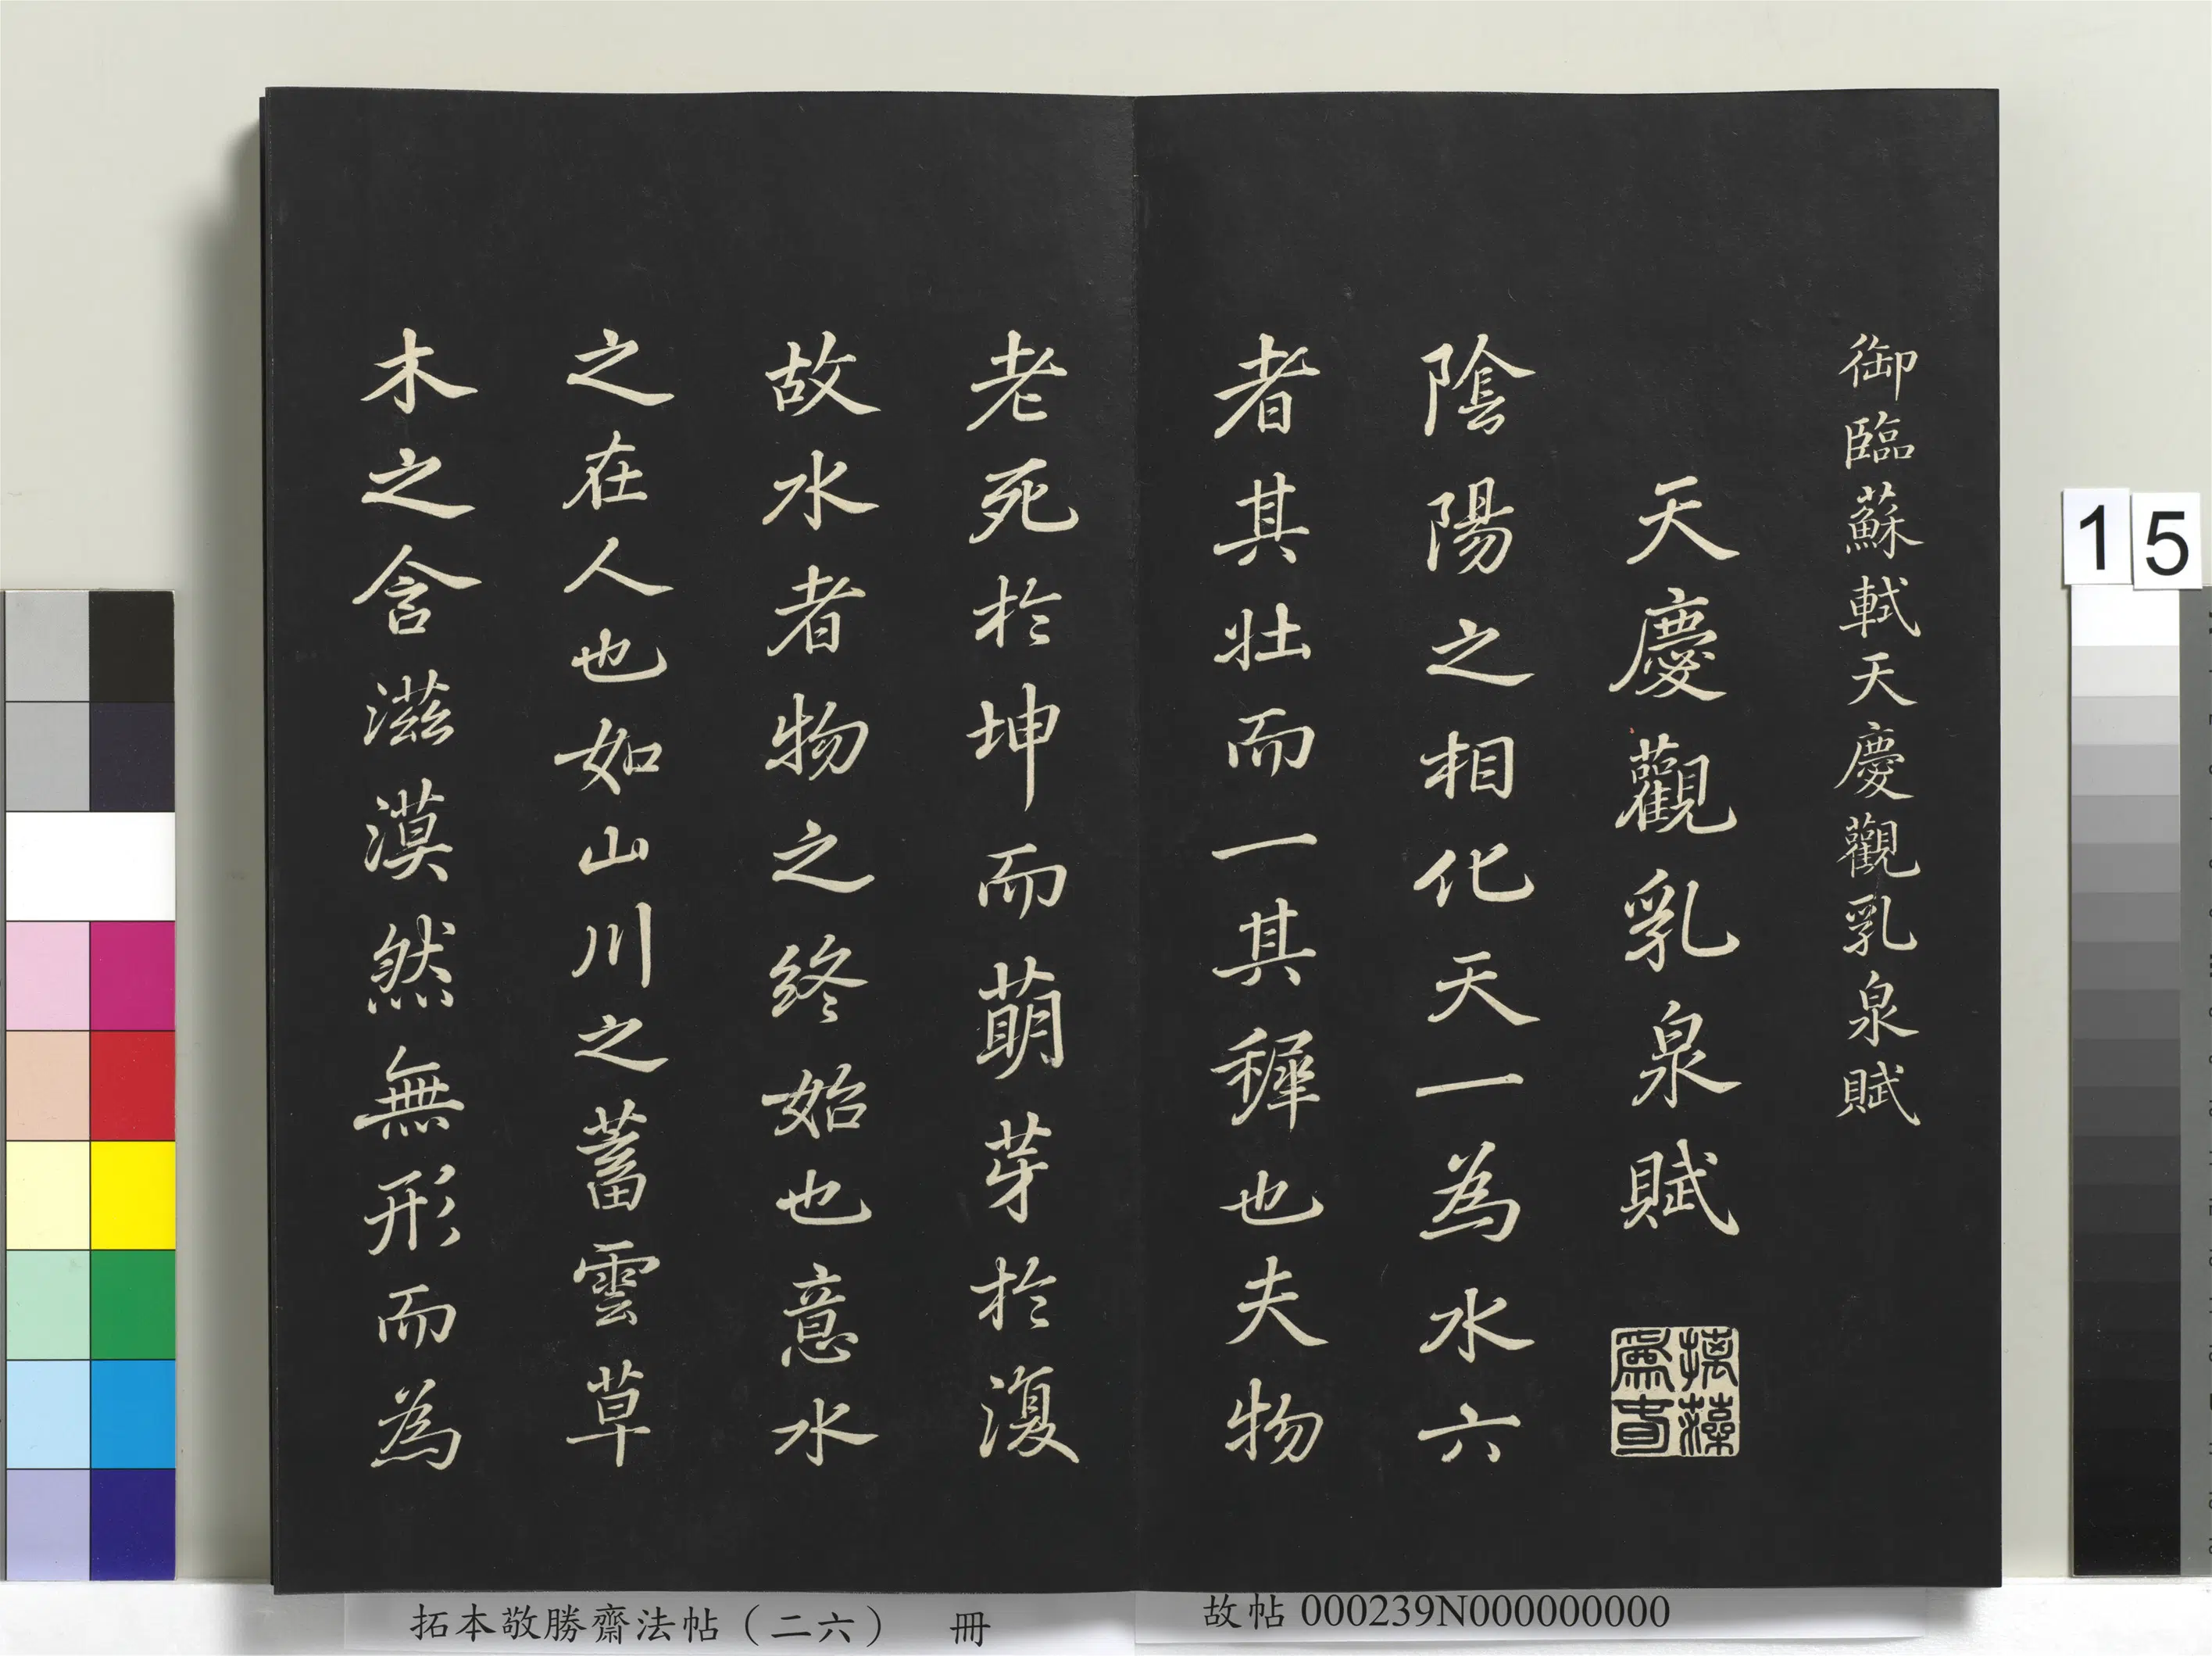 御臨蘇軾天慶觀乳泉賦
天慶觀乳泉賦
摛藻爲春
陰陽之相化天一為水六
者其壯而一其穉也夫物
老死於坤而萌芽於復
故水者物之終始也意水
之在人也如山川之蓄雲草
木之含滋漠然無形而為
15
故帖 000239N000000000
拓本敬勝齋法帖（二六） 冊